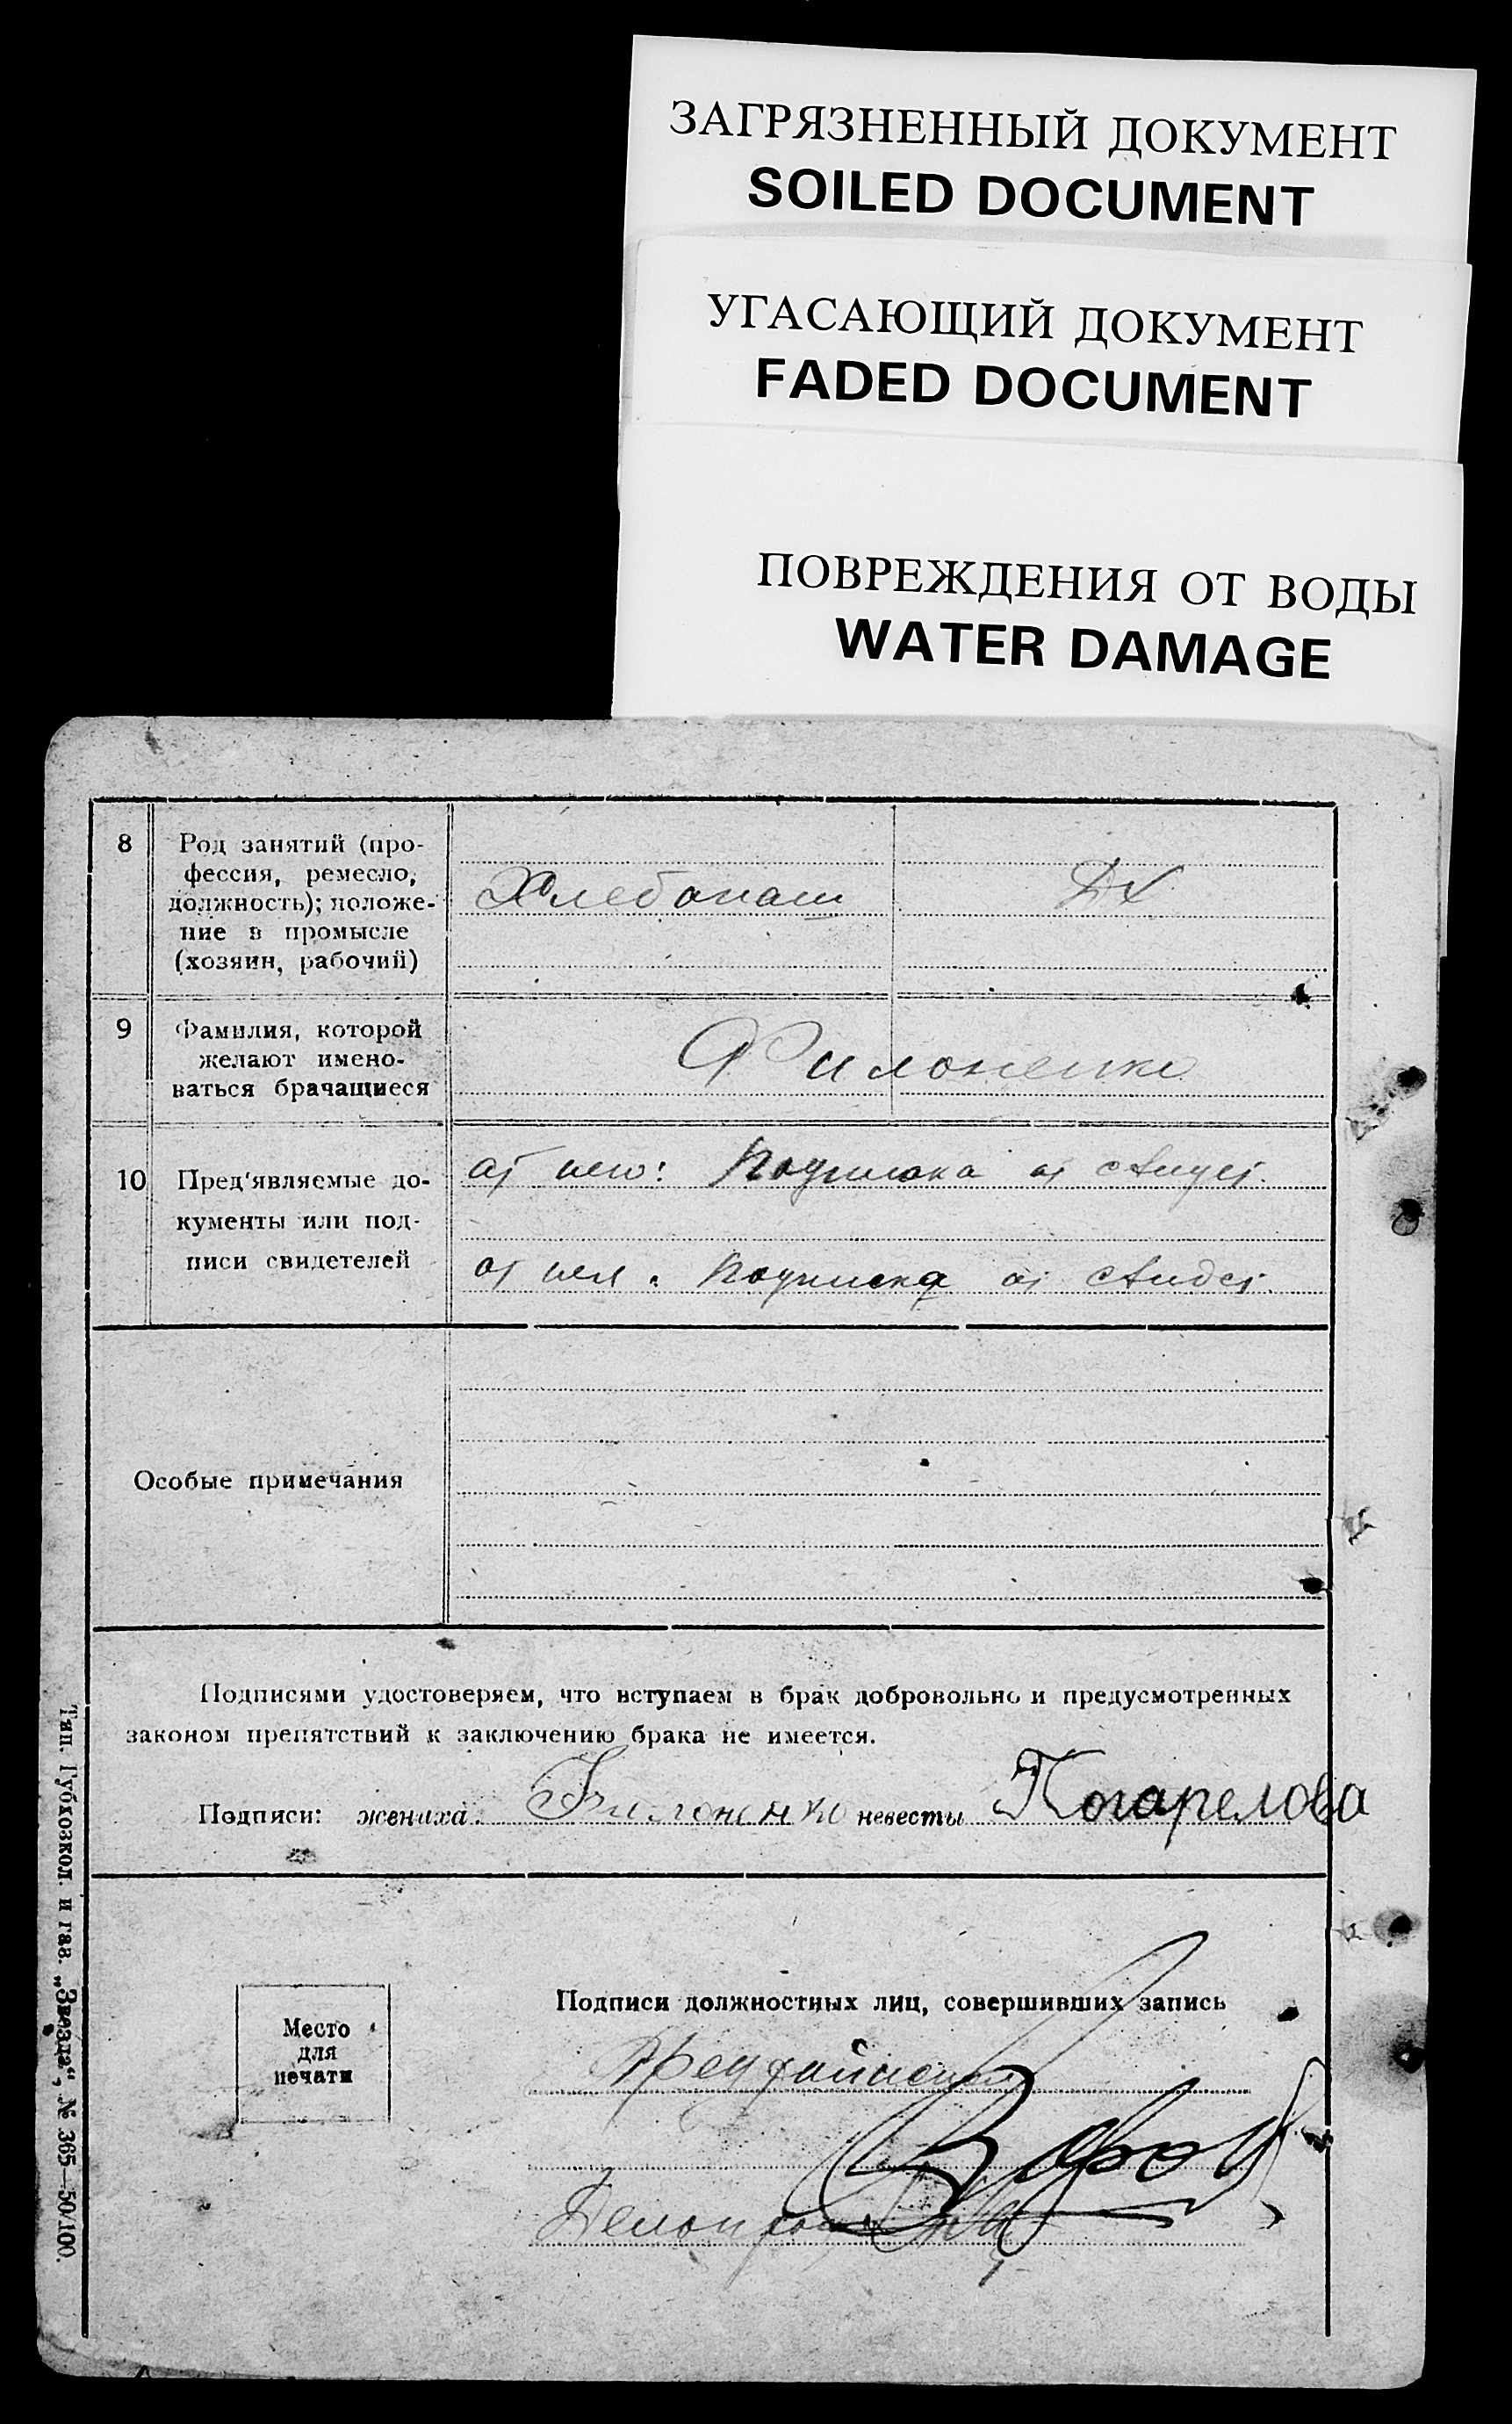 ЗАГРЯЗНЕННЫЙ ДОКУМЕНТ
SOILED DOCUMENT
УГАСАЮЩИЙ ДОКУМЕНТ
FADED DOCUMENT
ПОВРЕЖДЕНИЯ ОТ ВОДЫ
WATER DAMAGE
8
Род занятий (про-
фессия, ремесло,
должность); положе-
ние в промысле
(хозяин, рабочий)
Хлебопаш
ДХ
9
Фамилия, которой
желают имено-
ваться брачащиеся
Филоненко
10
Пред'являемые до-
кументы или под-
писи свидетелей
от него: Подписка от
от нея: Подписка от
Особые примечания
Подписями удостоверяем, что вступаем в брак добровольно и предусмотренных
законом препятствий к заключению брака не имеется.
Подписи: жениха Филоненко невесты Когарелова
Место
для
печати
Подписи должностных лиц, совершивших запись
Тип. Губхозкол. и газ. „Звезда“, № 365—50/100.